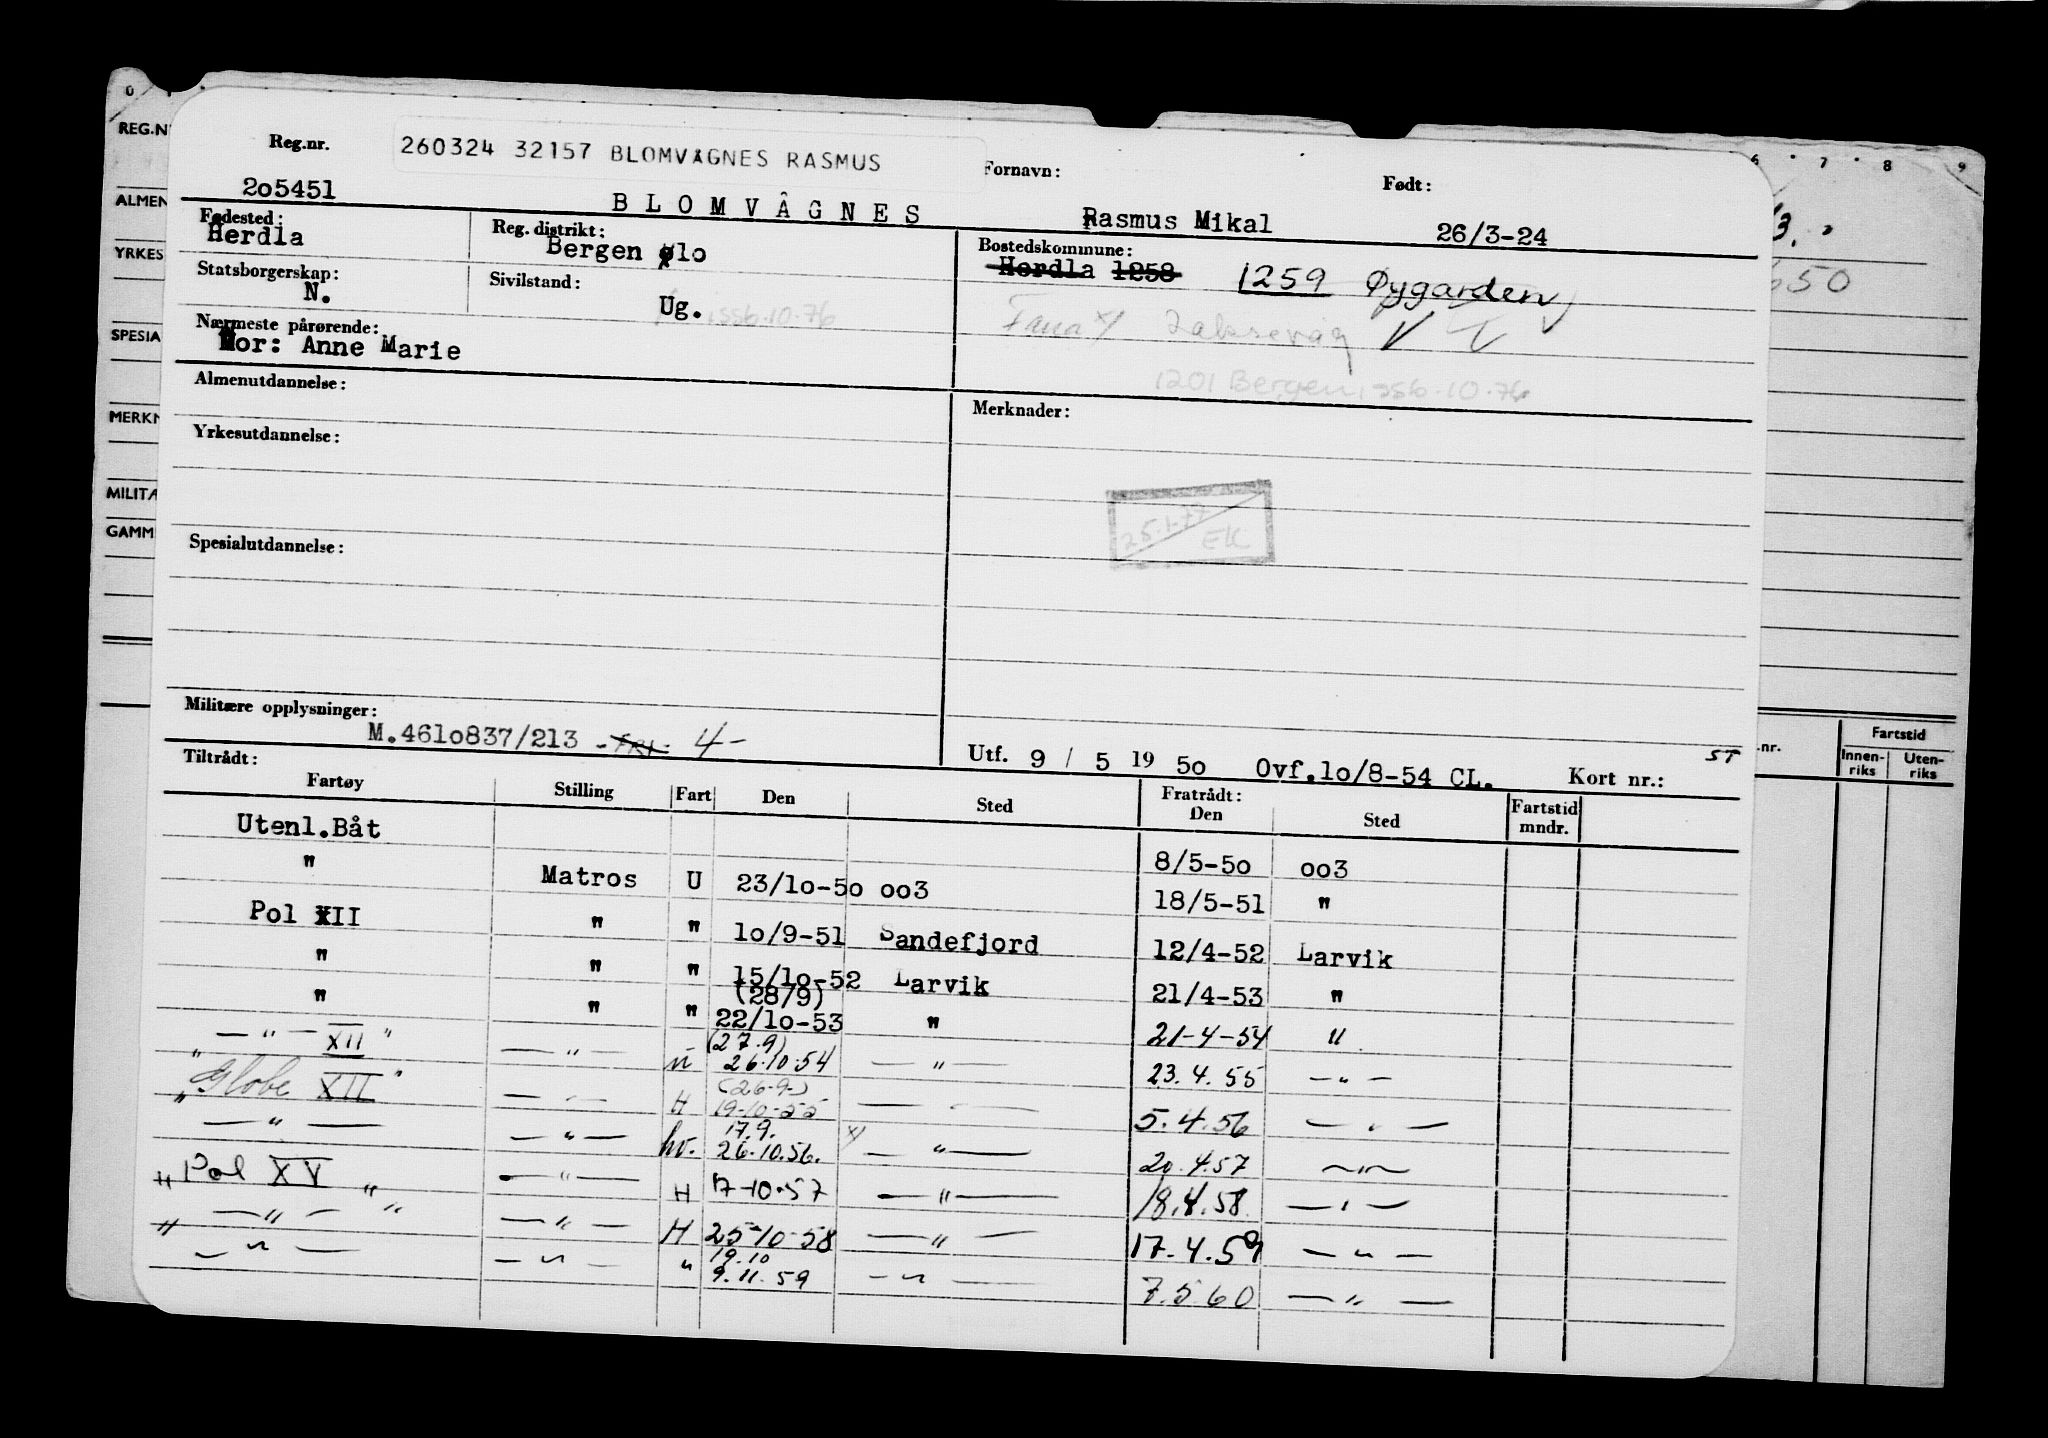 0 6 7 8 9
REG.N
ALMEN
YRKES
SPESIA
MERKN
MILITÆ
GAMM
650
.nr. Fartstid
Innen-riks Uten-riks
Reg.nr. 260324 32157 BLOMVÅGNES RASMUS Fornavn: Født:
2o5451 BLOMVÅGNES Rasmus Mikal 26/3-24
Fødested: Reg. distrikt: Bostedskommune:
Herdla Bergen ølo Herdla 1258 1259 Øygarden
Statsborgerskap: Sivilstand:
N. Ug. 1556.10.76 Fana x/ Laksevåg
Nærmeste pårørende:
Mor: Anne Marie
1201 Bergen, 1556.10.76
Almenutdannelse: Merknader:
Yrkesutdannelse:
25.1.77
EK
Spesialutdannelse:
Militære opplysninger:
M.461o837/213 - FRI. 4-
Utf. 9 / 5 19 5o Ovf.1o/8-54 CL. Kort nr.: ST
Tiltrådt: Fratrådt:
Fartøy Stilling Fart Den Sted Den Sted Fartstid mndr.
Utenl.Båt 8/5-5o oo3
" Matros U 23/1o-5o oo3 18/5-51 "
Pol XII " " 1o/9-51 Sandefjord 12/4-52 Larvik
" " " 15/1o-52 Larvik 21/4-53 "
(28/9)
" " " 22/1o-53 " 21-4-54 "
(27.9)
— " — XII " — " — " 26.10.54 — " — 23.4.55 — " —
(26.9)
" Globe XII " — " — H 19-10-55 — " — 5.4.56 — " —
17.9.
— " — — " — hv. 26.10.56. x/ — " — 20.4.57 — " —
" Pol XV " — " — H 17-10.57 — " — 18.4.58 — " —
" — " — " — " — H 25-10-58 — " — 17.4.59 — " —
19.10
" — " — — " — " 9.11.59 — " — 7.5.60 — " —